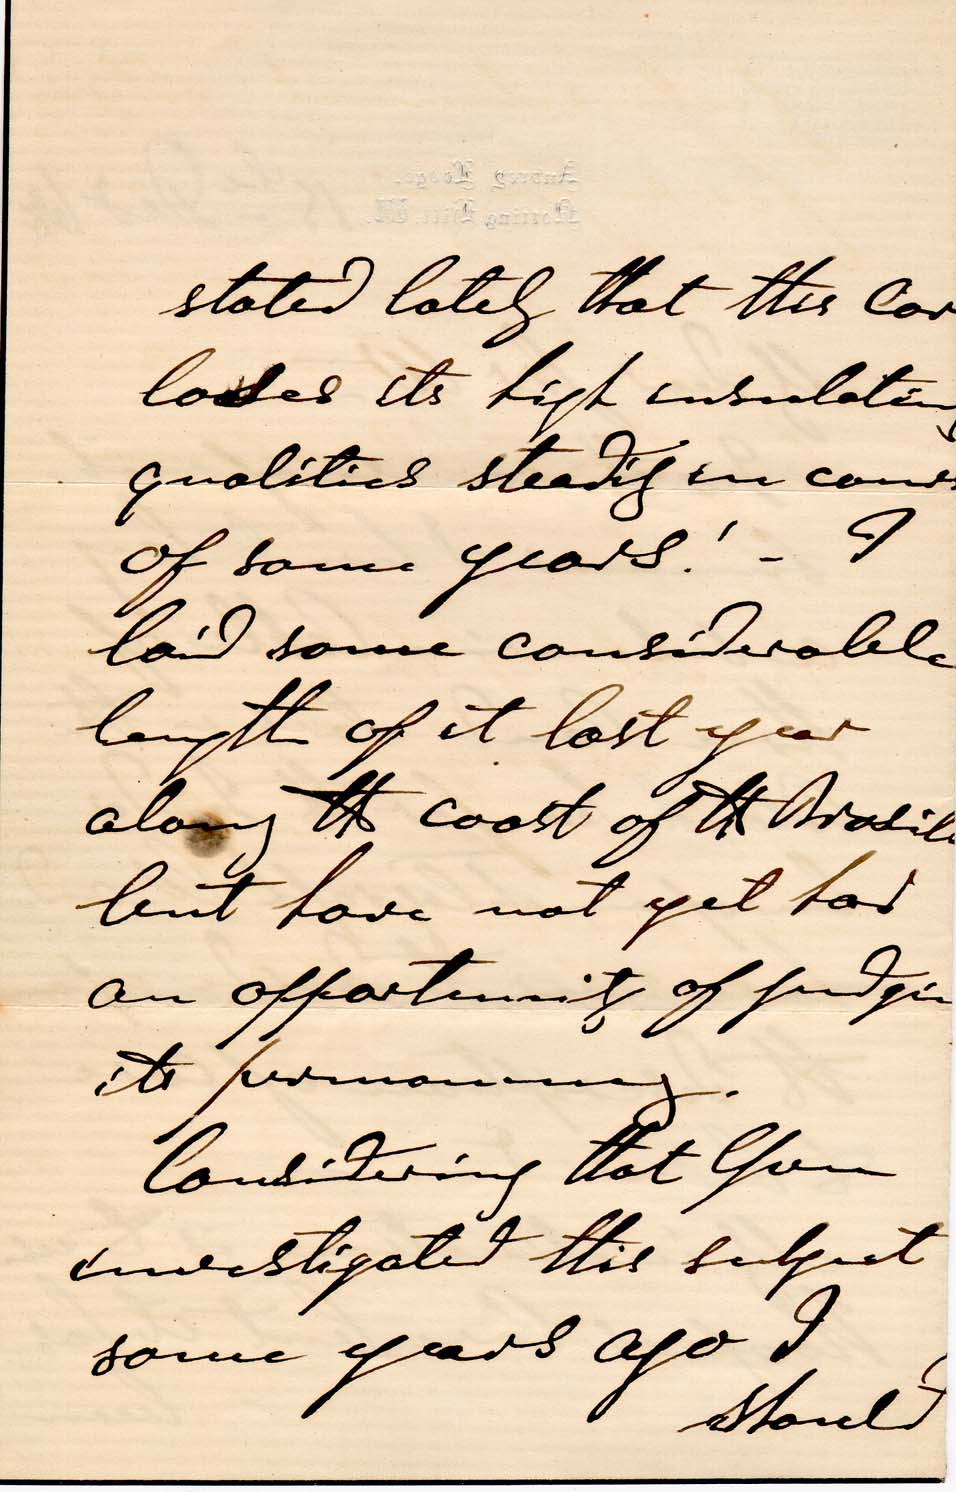 Aubrey Lodge.
Notting Hill. W.
stated lately that this cor
loses its high insulating
qualities steadily in cours
of some years! - I
laid some considerable
length of it last year
along the coast of the Brasils
but have not yet had
an opportunity of judgin
its permanency.
Considering that You
investigated this subject
some years ago I
should